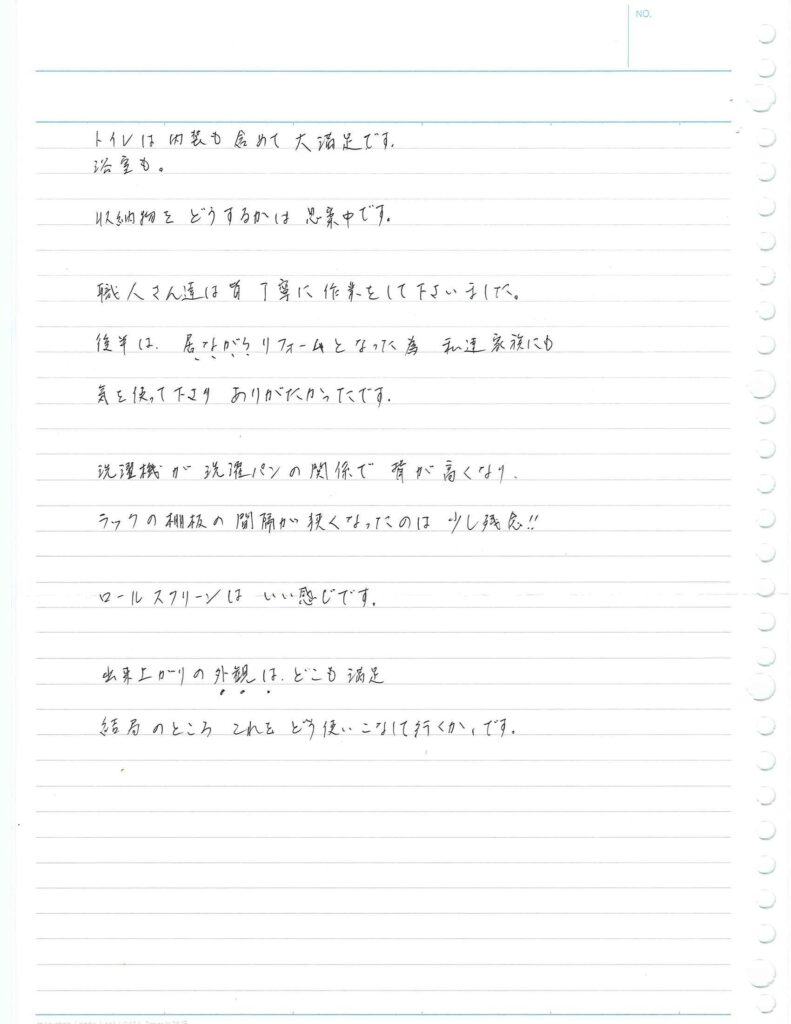 NO.
トイレは 内装も 含めて 大満足です.
浴室も。
収納物を どうするかは 思案中です.
職人さん達は皆 丁寧に 作業をして下さいました。
後半は. 居ながらリフォームとなった為 私達家族にも
気を使って下さり ありがたかったです.
洗濯機が 洗濯パンの関係で 背が高くなり.
ラックの棚板の間隔が狭くなったのは 少し残念!!
ロールスクリーンは いい感じです.
出来上がりの外観は. どこも満足
結局のところ これを どう使いこなして行くか, です.